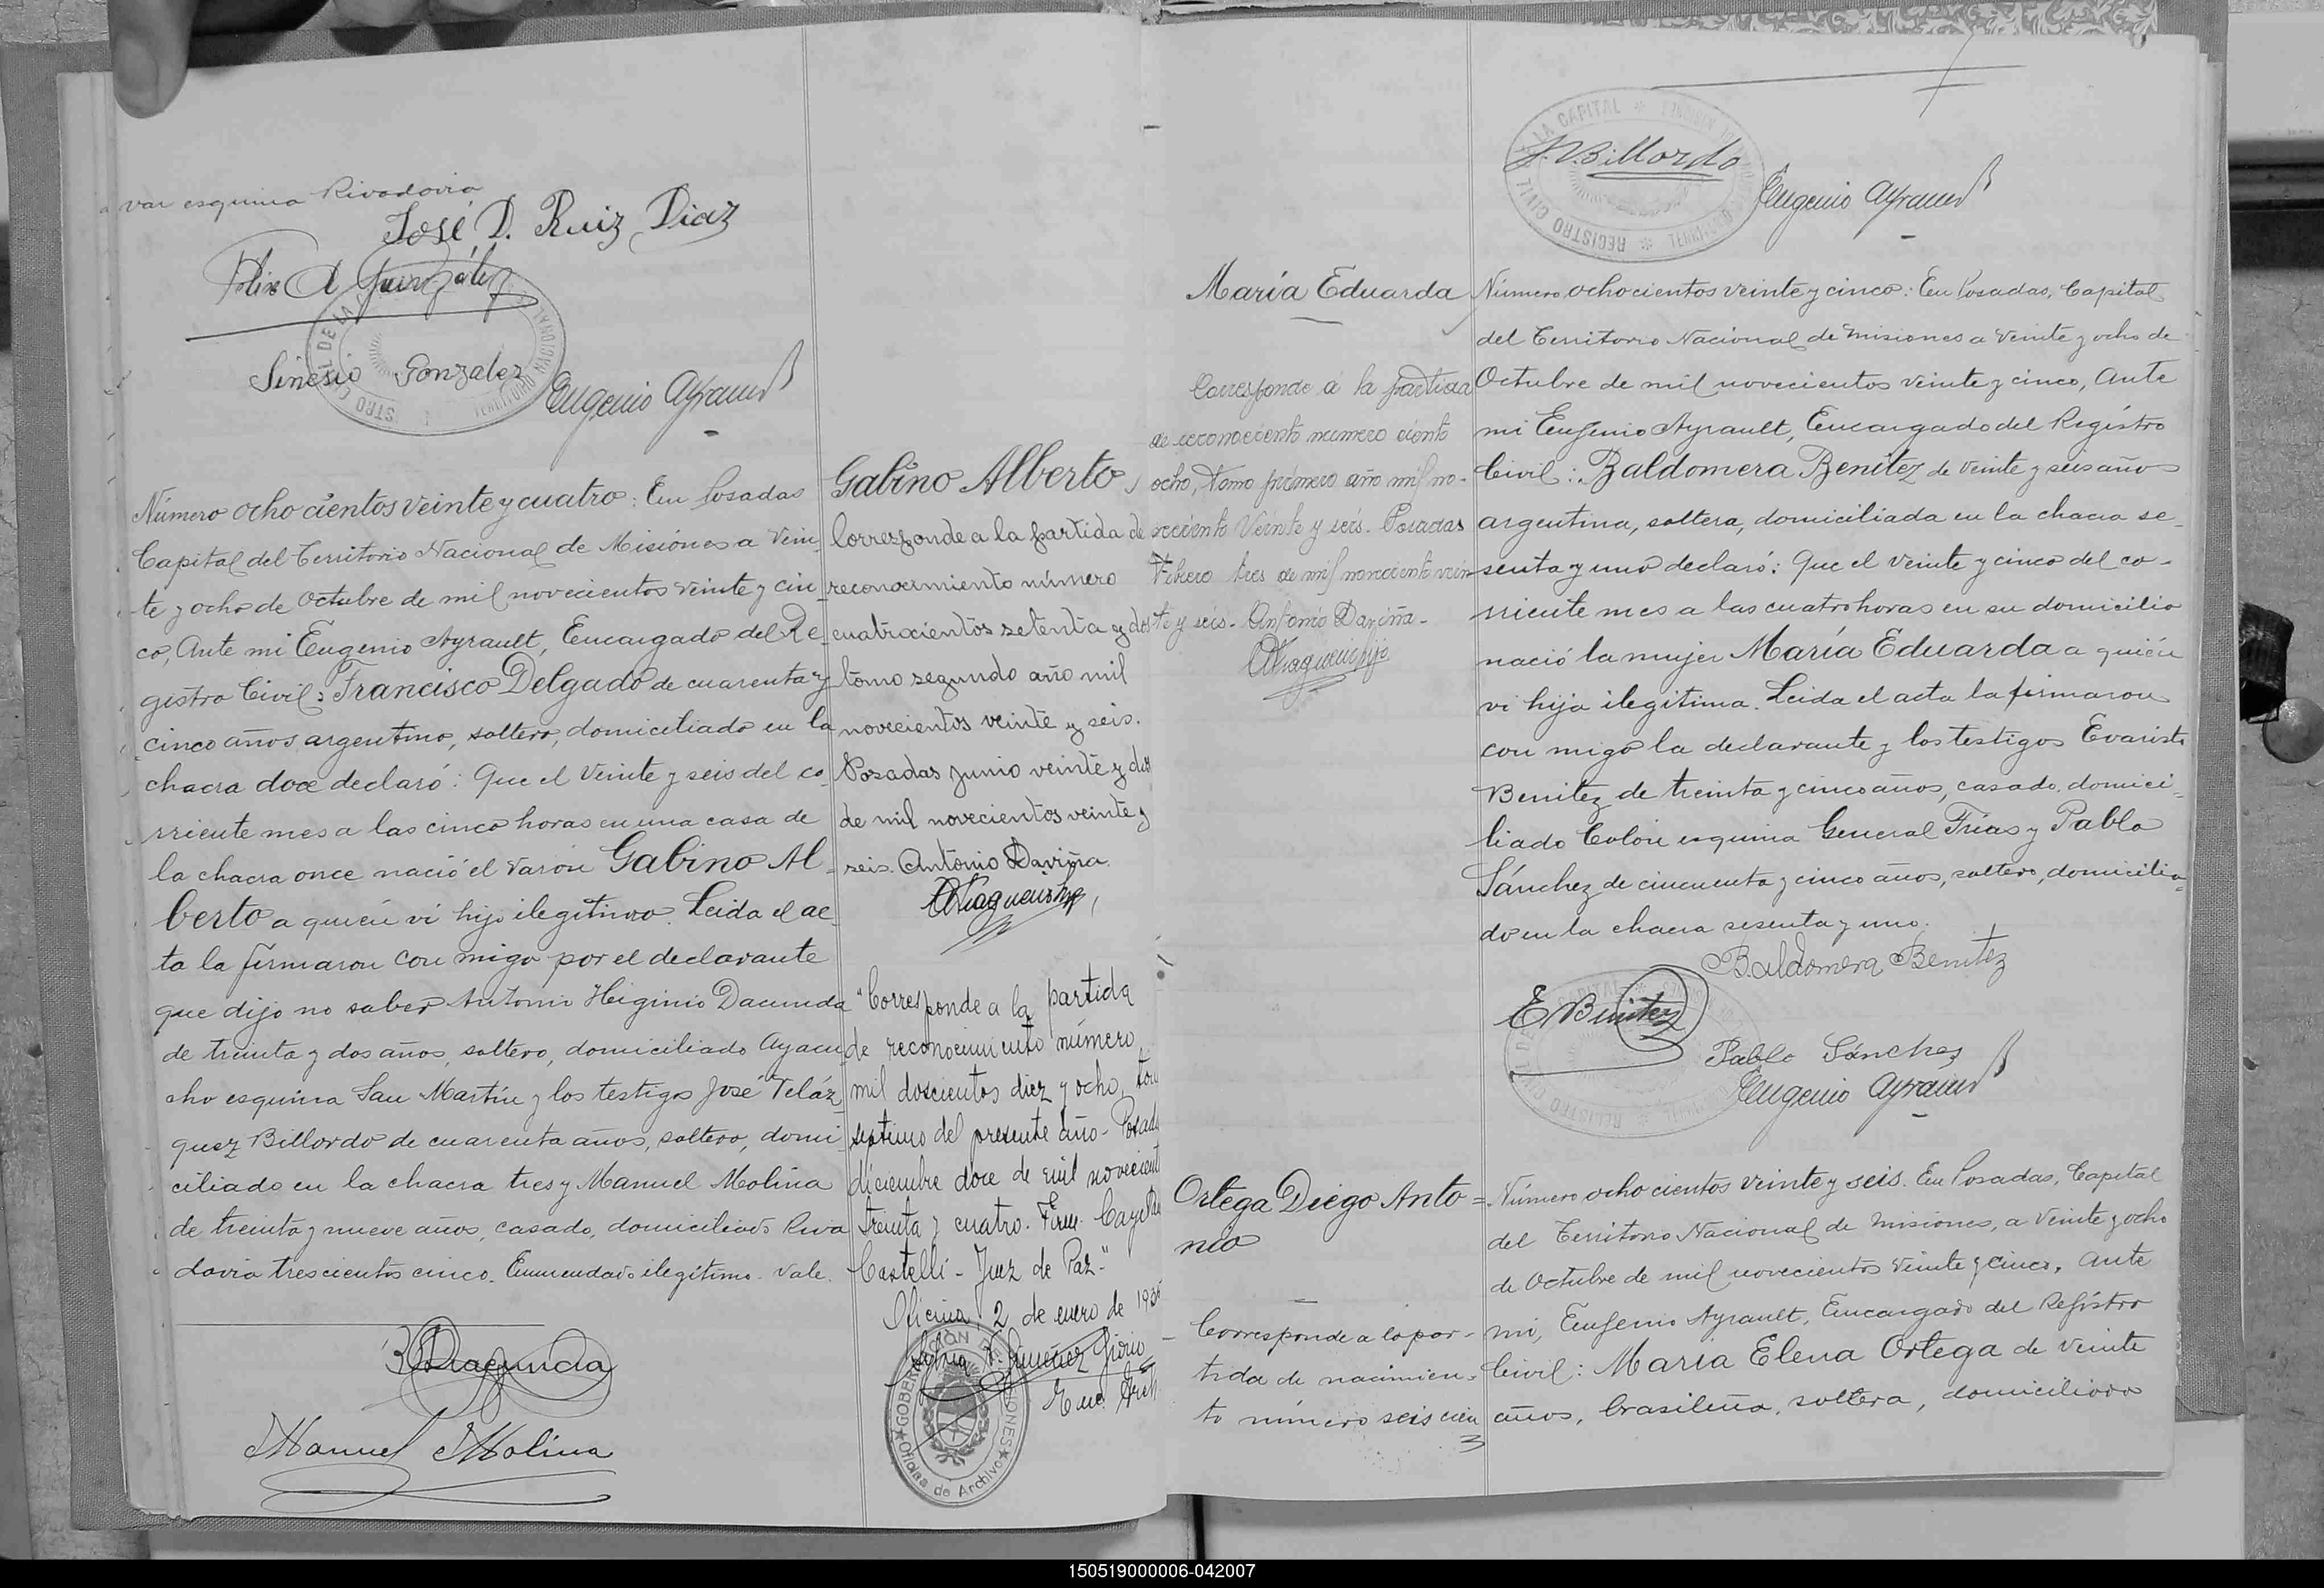 var esquina Rivadavia
José D. Ruiz Diaz
Felix A González
Sinesio Gonzalez
Eugenio Ayrault
Número ochocientos veinte y cuatro: En Posadas
Capital del Territorio Nacional de Misiónes a Vein
te y ocho de Octubre de mil novecientos veinte y cin
co, Ante mi Eugenio Ayrault, Encargado del Re
gistro Civil: Francisco Delgado de cuarenta y
cinco años argentino, soltero, domiciliado en la
chacra doce declaró: Que el Veinte y seis del co
rriente mes a las cinco horas en una casa de
la chacra once nació el varón Gabino Al
berto a quien vi hijo ilegitimo. Leida el ac
ta la firmaron con migo por el declarante
que dijo no saber Antonio Higinio Dacunda
de treinta y dos años, soltero, domiciliado Ayacu
cho esquina San Martín y los testigos José Veláz
quez Billordo de cuarenta años, soltero, domi
ciliado en la chacra tres y Manuel Molina
de treinta y nueve años, casado, domiciliado Riva
davia trescientos cinco. Enmendado ilegítimo. Vale.
Manuel Molina
Gabino Alberto
Corresponde a la partida de
reconocimiento número
cuatrocientos setenta y dos
tomo segundo año mil
novecientos veinte y seis.
Posadas junio veinte y dos
de mil novecientos veinte y
seis. Antonio Daviña.
"Corresponde a la partida
de reconocimiento número
mil doscientos diez y ocho, tomo
septimo del presente año - Posadas
diciembre doce de mil novecient
treinta y cuatro. Firm.
Castelli - Juez de Paz-"
Oficina, 2 de enero de 193
GOBERNACION DE MISIONES
Oficina de Archivo
J. V. Billordo
REGISTRO CIVIL DE LA CAPITAL
Eugenio Ayrault
María Eduarda
Corresponde á la partida
de reconociento numero ciento
ocho, Tomo primero año mil no-
veciento Veinte y seis. Posadas
Febrero tres de mil noveciento vein
te y seis. Antonio Daviña.
Número ochocientos veinte y cinco: En Posadas, Capital
del Territorio Nacional de Misiones a Veinte y ocho de
Octubre de mil novecientos veinte y cinco, Ante
mi Eugenio Ayrault, Encargado del Registro
Civil: Baldomera Benitez de veinte y seis años
argentina, soltera, domiciliada en la chacra se
senta y uno declaró: Que el Veinte y cinco del co-
rriente mes a las cuatro horas en su domicilio
nació la mujer María Eduarda a quién
vi hija ilegitima. Leida el acta la firmaron
con migo la declarante y los testigos Evaristo
Benitez de treinta y cinco años, casado, domici
liado Colón esquina General Frías y Pablo
Sánchez de cincuenta y cinco años, soltero, domicilia
do en la chacra sesenta y uno.
Baldomera Benitez
E Benitez
Pablo Sánchez
Eugenio Ayrault
Ortega Diego Anto=
nio
Corresponde a la par-
tida de nacimien-
to número seis cien
Número ochocientos veinte y seis. En Posadas, Capital
del Territorio Nacional de Misiones, a Veinte y ocho
de Octubre de mil novecientos veinte y cinco, Ante
mi, Eugenio Ayrault, Encargado del Registro
Civil: Maria Elena Ortega de veinte
años, brasileña, soltera, domiciliada
150519000006-042007